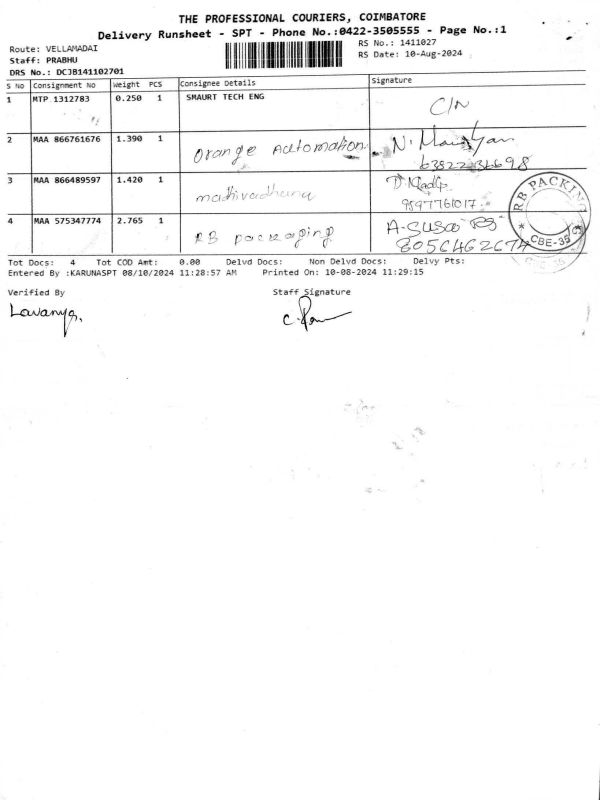 THE PROFESSIONAL COURIERS, COIMBATORE
Delivery Runsheet - SPT - Phone No.:0422-3505555 - Page No.:1
Route: VELLAMADAI
RS No.: 1411027
Staff: PRABHU
RS Date: 10-Aug-2024
DRS No.: DCJB141102701
S No Consignment No Weight PCS Consignee Details Signature
1 MTP 1312783 0.250 1 SMAURT TECH ENG
2 MAA 866761676 1.390 1 Orange Automation
3 MAA 866489597 1.420 1 mathivadhana
4 MAA 575347774 2.765 1 RB packaging
RB PACKING
CBE-35
Tot Docs: 4 Tot COD Amt: 0.00 Delvd Docs: Non Delvd Docs: Delvy Pts:
Entered By :KARUNASPT 08/10/2024 11:28:57 AM Printed On: 10-08-2024 11:29:15
Verified By Staff Signature
Lavanya.